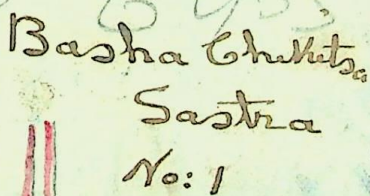 Basha Chekitsa
Sastra
No: 1